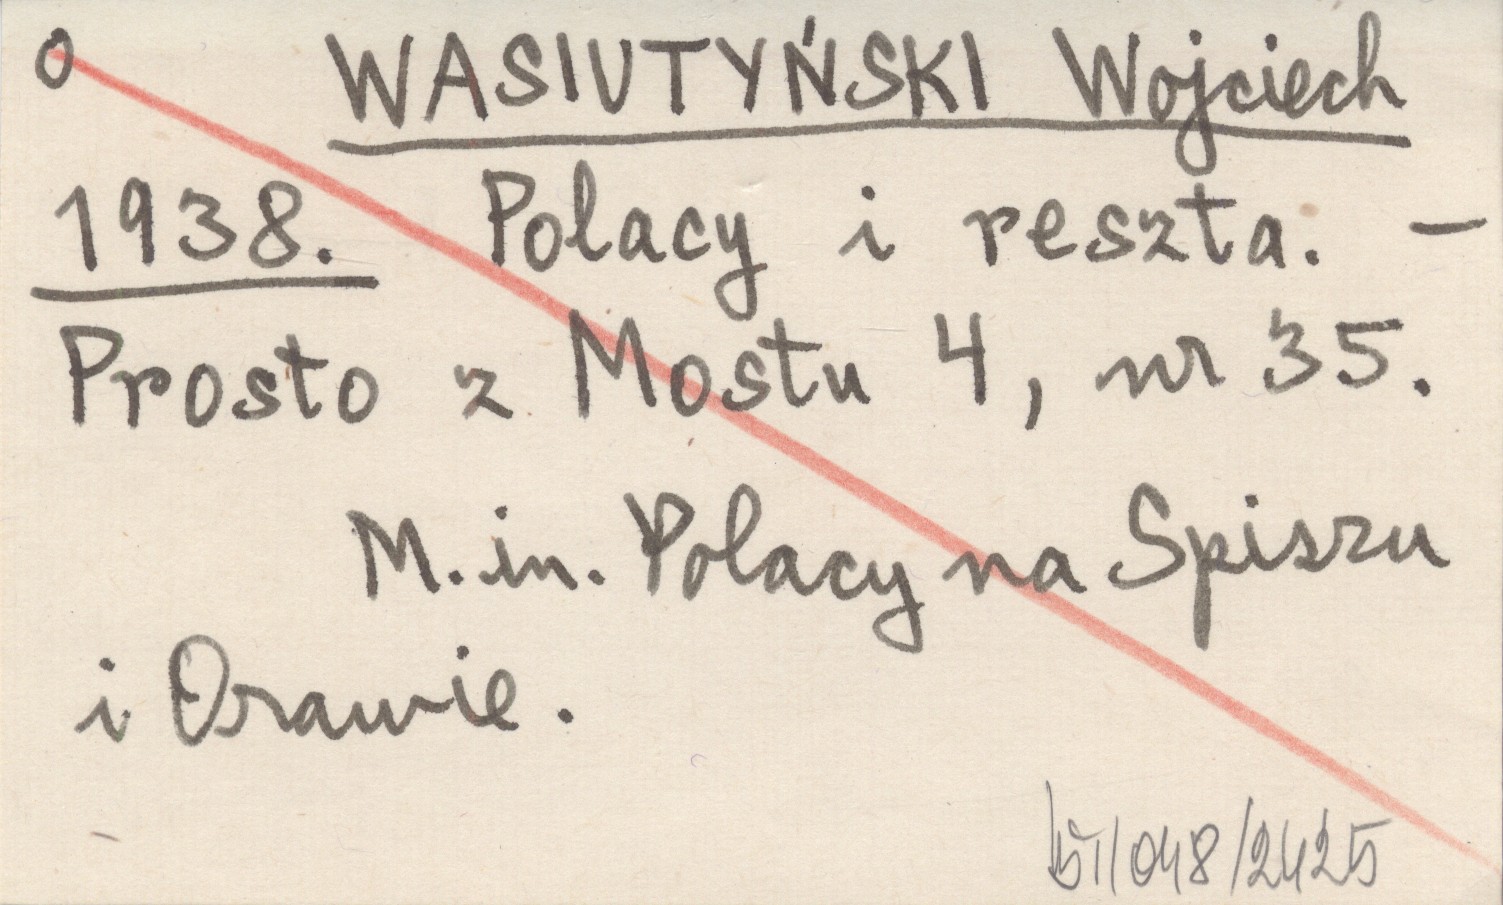 o WASIUTYŃSKI Wojciech
1938. Polacy i reszta. –
Prosto z Mostu 4, nr 35.
M. in. Polacy na Spiszu
i Orawie.
/048/2425